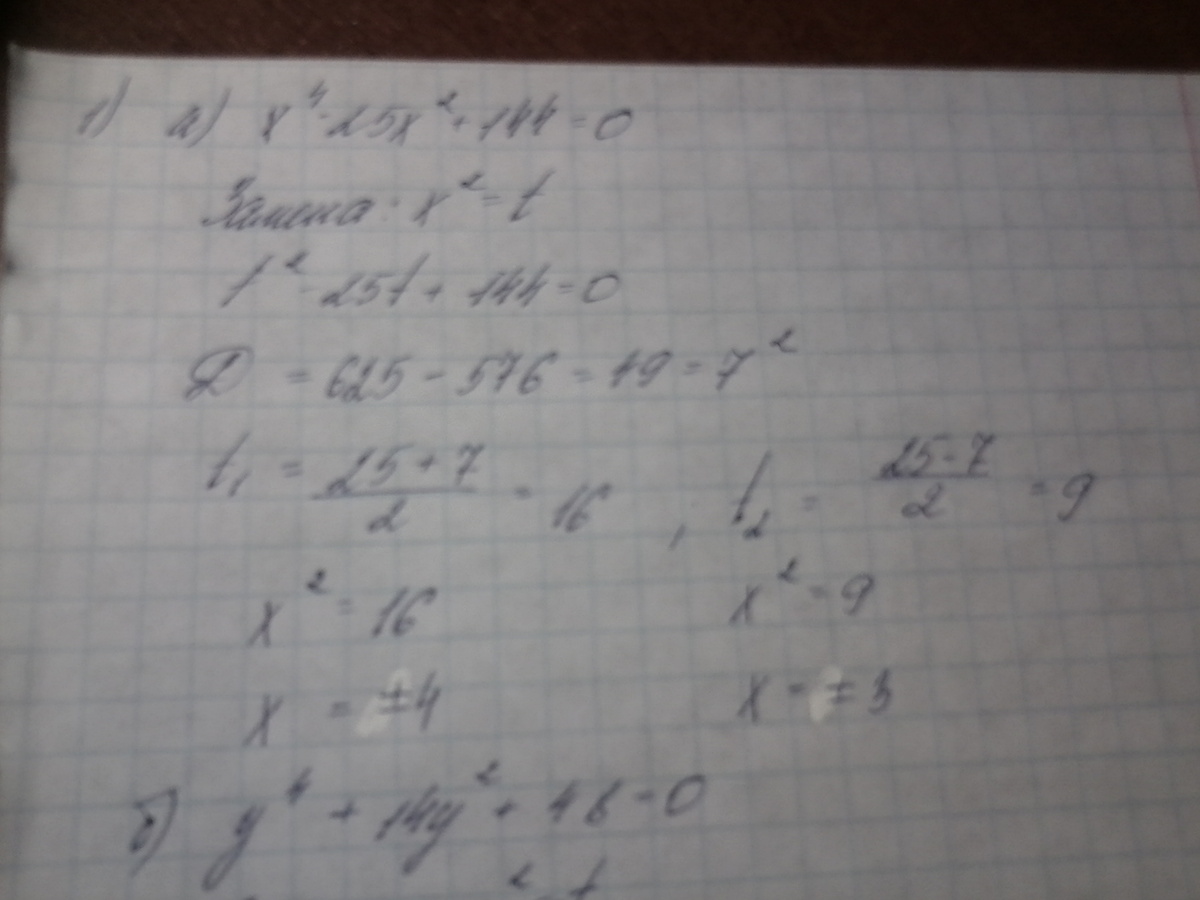 1) а) x⁴-25x²+144=0
Замена: x²=t
t²-25t+144=0
D = 625-576=49=7²
t₁ = (25+7)/2 = 16, t₂ = (25-7)/2 = 9
x²=16 x²=9
x = ±4 x = ±3
б) y⁴+14y²+48=0
² t